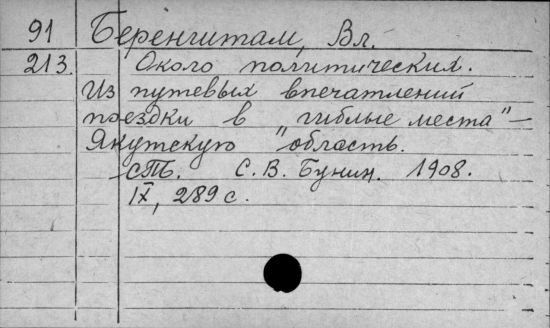 91 Беренштам, Вл.
213. Около политических.
Из путевых впечатлений
поездки в "гиблые места" –
Якутскую область.
СПБ. С.В. Бунин. 1908.
IX, 289 с.